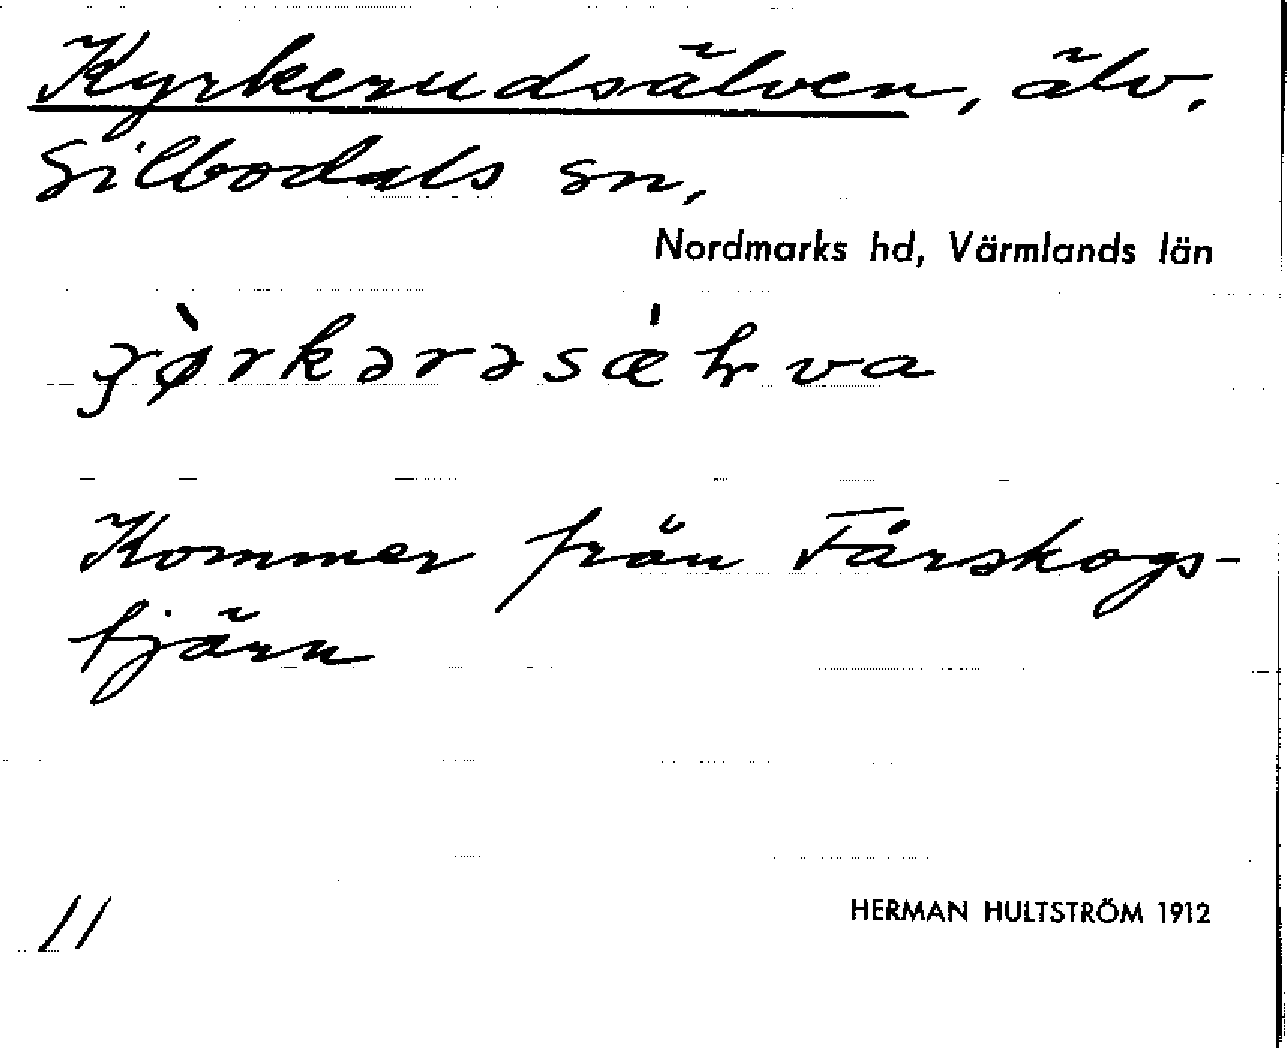 Kyrkerudsälven, älv,
Silbodals sn,
Nordmarks hd, Värmlands län
Kommer från Fårskogs-
tjärn
11
HERMAN HULTSTRÖM 1912